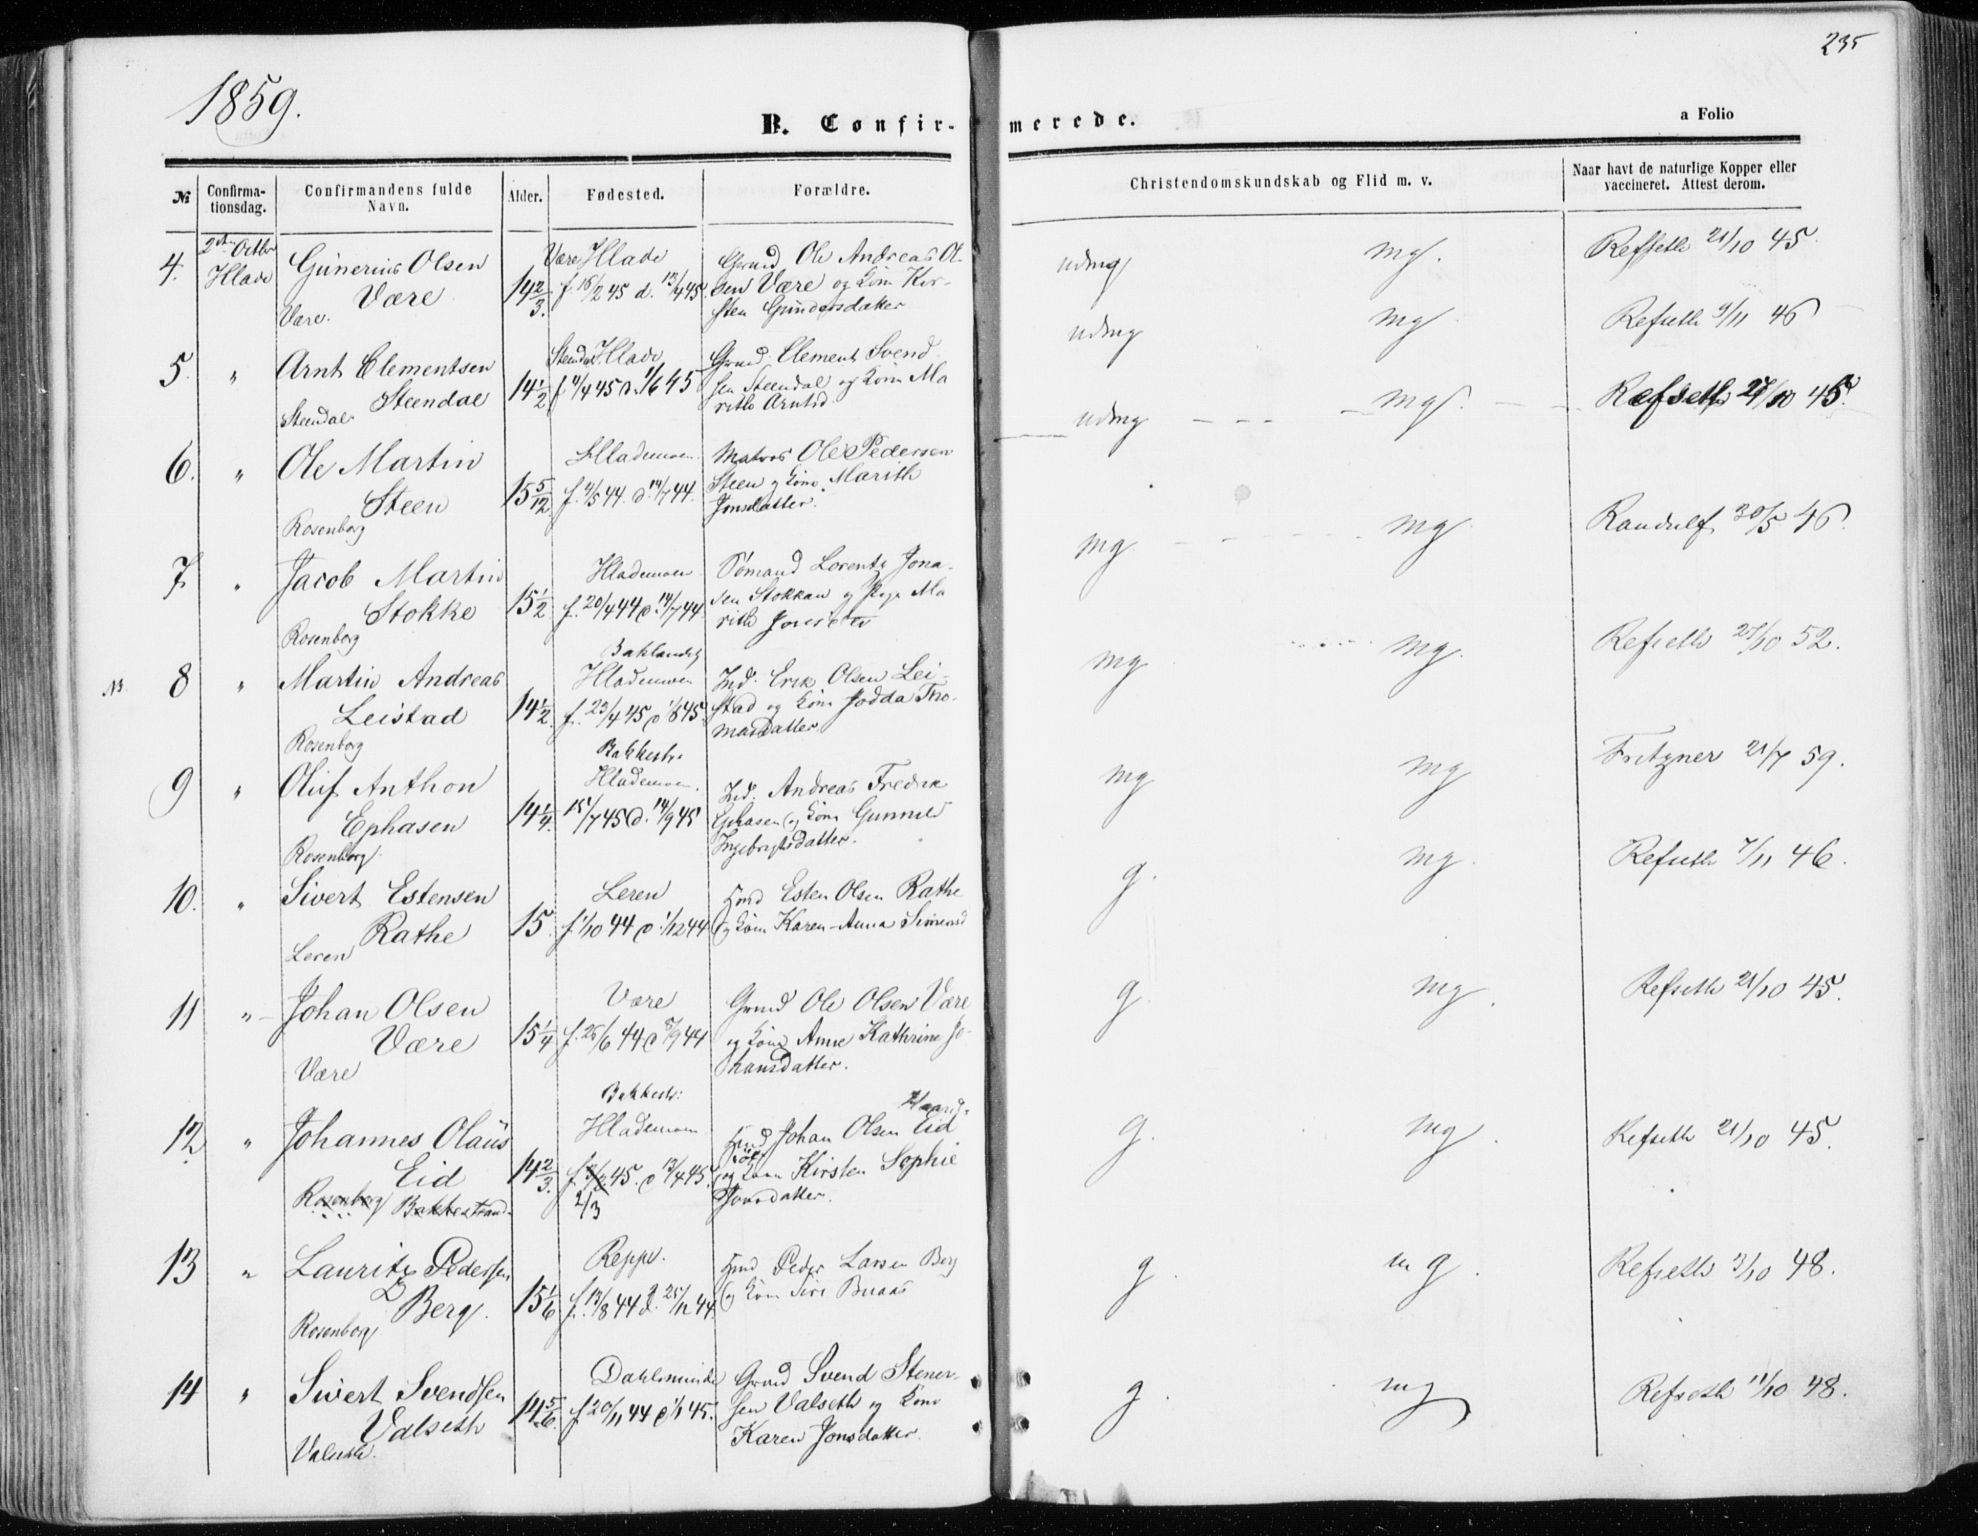 235
1859.
B. Confir-
merede.
a Folio
№
Confirma-
tionsdag.
Confirmandens fulde
Navn.
Alder.
Fødested.
Forældre.
Christendomskundskab og Flid m. v.
Naar havt de naturlige Kopper eller
vaccineret. Attest derom.
4. 2den Octbr Gunerius Olsen Være Hlade Grmd Ole Andreas Ol-
Hlade Være 14 2/3. f. 16/2 45 d. 13/4 45 sen Være og Kone Kir-
Være. sten Gundersdatter
udmg mg. Refseth 21/10 45.
5. " Arnt Clementsen Steendal Hlade Grmd. Clement Svend
Steendal 14 1/2 f 11/4 45 d. 1/6 45 sen Steendal og Kone Ma
Steendal rith Arntsd.
udmg mg Refseth 9/11 46
6. " Ole Martin Hlademoen Matros Ole Pedersen
Steen 15 5/12 f. 4/5 44. d. 14/7 44. Steen og Kone Marith
Rosenborg Jonsdatter.
udmg mg. Refseth 27/10 45.
7. " Jacob Martin Hlademoen Sømand Lorentz Jona-
Stokke 15 1/2 f. 20/4 44 d. 14/7 44 sen Stokkan og Pige Ma
Rosenborg rith
mg mg. Randulf 30/5 46.
NB. 8 " Martin Andreas Baklandet
Hlademoen Ind. Erik Olsen Lei-
Leistad 14 1/2 f. 23/4 45 d 1/6 45 stad og Kone Jodda Tho-
Rosenborg masdatter
mg mg. Refseth 27/10 52.
9 " Oluf Anthon Bakkestr.
Hlademoen. Ind. Andreas Fredrik
Ephasen 14 1/4. 15/7 45 d. 14/9 45 Ephasen og Kone Gunnild
Rosenborg. Ingebrigtsdatter.
mg mg Fritzner 21/7 59.
10. " Sivert Estensen Leren Hmd Esten Olsen Rathe
Rathe 15. f. 1/10 44 d. 1/12 44 og Kone Karen-Anna
Leren
g. mg. Refseth 7/11 46.
11 " Johan Olsen Være Grmd Ole Olsen Være
Være 15 1/4 f. 26/6 44 d 8/9 44 og Kone Anne Kathrine Jo-
Være hansdatter.
g mg. Refseth 21/10 45.
12. " Johannes Olaüs Bakkestr:
Hlademoen Johan Olsen Eid
Eid 14 2/3. 45. d 13/4 45. og Kone Kirsten Sophie
Rosenborg Bakkestrand. 2/3 Jonsdatter.
g. mg. Refseth 21/10 45.
13 " Lauritz Pedersen Reppe. Hmd Peder Larsen Berg
Berg. 15 1/6 f. 13/8 44 d. 25/12 44. og Kone Siri Buaas
Rosenborg
g. mg. Refseth 3/10 48.
14 " Sivert Svendsen Dahlsminde Grmd Svend Stener-
Valseth 14 5/6. f 20/11 44 d 1/1 45. sen Valseth og Kone
Valseth. Karen Jonsdatter.
g. mg Refseth 11/10 48.